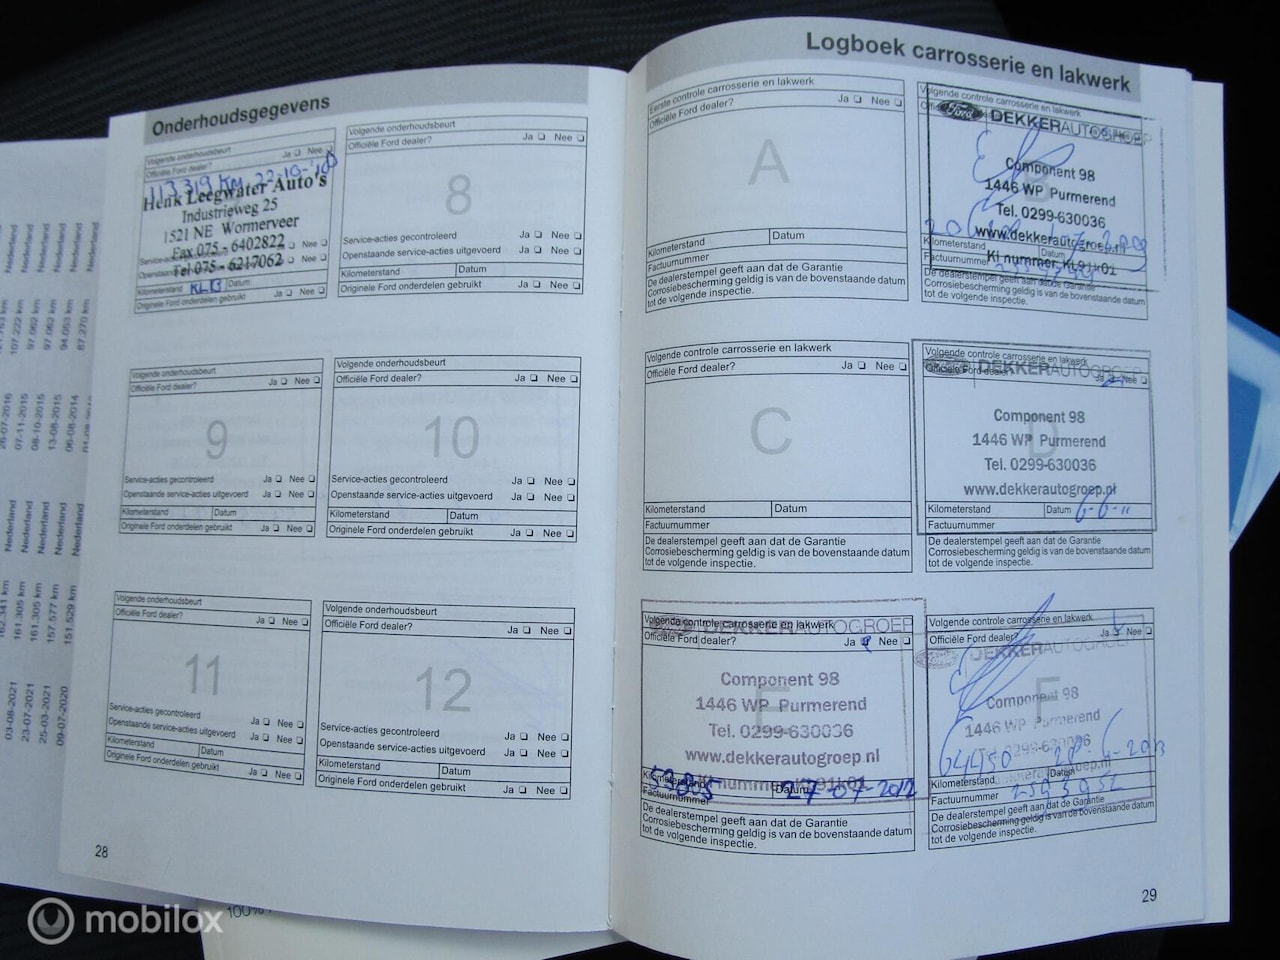 Onderhoudsgegevens
Volgende onderhoudsbeurt
Officiële Ford dealer? Ja Nee
113319 KM 22-10-'18
Henk Leegwater Auto's
Industrieweg 25
1521 NE Wormerveer
Fax 075 - 6402822
Tel 075 - 6217062
Kilometerstand Datum
Originele Ford onderdelen gebruikt Ja Nee
Volgende onderhoudsbeurt
Officiële Ford dealer? Ja Nee
8
Service-acties gecontroleerd Ja Nee
Openstaande service-acties uitgevoerd Ja Nee
Kilometerstand Datum
Originele Ford onderdelen gebruikt Ja Nee
Volgende onderhoudsbeurt
Officiële Ford dealer? Ja Nee
9
Service-acties gecontroleerd Ja Nee
Openstaande service-acties uitgevoerd Ja Nee
Kilometerstand Datum
Originele Ford onderdelen gebruikt Ja Nee
Volgende onderhoudsbeurt
Officiële Ford dealer? Ja Nee
10
Service-acties gecontroleerd Ja Nee
Openstaande service-acties uitgevoerd Ja Nee
Kilometerstand Datum
Originele Ford onderdelen gebruikt Ja Nee
Volgende onderhoudsbeurt
Officiële Ford dealer? Ja Nee
11
Service-acties gecontroleerd Ja Nee
Openstaande service-acties uitgevoerd Ja Nee
Kilometerstand Datum
Originele Ford onderdelen gebruikt Ja Nee
Volgende onderhoudsbeurt
Officiële Ford dealer? Ja Nee
12
Service-acties gecontroleerd Ja Nee
Openstaande service-acties uitgevoerd Ja Nee
Kilometerstand Datum
Originele Ford onderdelen gebruikt Ja Nee
28
Logboek carrosserie en lakwerk
Eerste controle carrosserie en lakwerk
Officiële Ford dealer? Ja Nee
A
Kilometerstand Datum
Factuurnummer
De dealerstempel geeft aan dat de Garantie
Corrosiebescherming geldig is van de bovenstaande datum
tot de volgende inspectie.
Volgende controle carrosserie en lakwerk
Ford DEKKERAUTOGROEP
Component 98
1446 WP Purmerend
Tel. 0299-630036
www.dekkerautogroep.nl
Kilometerstand Datum
Factuurnummer
KI nummer KL91k01
De dealerstempel geeft aan dat de Garantie
Corrosiebescherming geldig is van de bovenstaande datum
tot de volgende inspectie.
Volgende controle carrosserie en lakwerk
Officiële Ford dealer? Ja Nee
C
Kilometerstand Datum
Factuurnummer
De dealerstempel geeft aan dat de Garantie
Corrosiebescherming geldig is van de bovenstaande datum
tot de volgende inspectie.
Volgende controle carrosserie en lakwerk
Officiële Ford dealer? Ja Nee
DEKKERAUTOGROEP
D
Component 98
1446 WP Purmerend
Tel. 0299-630036
www.dekkerautogroep.nl
Kilometerstand Datum 6-6-11
Factuurnummer
De dealerstempel geeft aan dat de Garantie
Corrosiebescherming geldig is van de bovenstaande datum
tot de volgende inspectie.
Volgende controle carrosserie en lakwerk
DEKKERAUTOGROEP
Officiële Ford dealer? Ja Nee
Component 98
1446 WP Purmerend
Tel. 0299-630036
www.dekkerautogroep.nl
KI nummer KL91k01
Kilometerstand 53805 Datum 27-07-2012
Factuurnummer
De dealerstempel geeft aan dat de Garantie
Corrosiebescherming geldig is van de bovenstaande datum
tot de volgende inspectie.
Volgende controle carrosserie en lakwerk
Officiële Ford dealer? Ja Nee
DEKKERAUTOGROEP
F
Component 98
1446 WP Purmerend
Tel. 0299-630036
64450 28-6-2013
Kilometerstand Datum
Factuurnummer
De dealerstempel geeft aan dat de Garantie
Corrosiebescherming geldig is van de bovenstaande datum
tot de volgende inspectie.
29
107.222 km
97.062 km
97.062 km
94.053 km
87.270 km
26-07-2016
07-11-2015
08-10-2015
13-08-2015
06-08-2014
Nederland
Nederland
Nederland
Nederland
Nederland
162.341 km
161.305 km
161.305 km
157.577 km
151.529 km
03-08-2021
23-07-2021
25-03-2021
09-07-2020
100%
mobilox